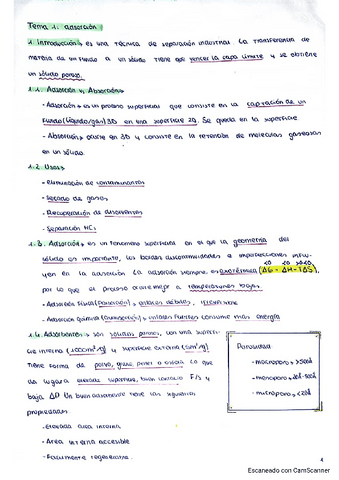 Tema 1. adsorción
1. Introducción → es una técnica de separación industrial. La transferencia de
materia de un fluido a un sólido tiene que vencer la capa límite y se obtiene
un sólido poroso.
1.1. Adsorción y Absorción
- Adsorción → es un proceso superficial que consiste en la captación de un
Fluido (líquido/gas) 3D en una superficie 2D. Se queda en la superficie
- Absorción → ocurre en 3D y consiste en la retención de moléculas gaseosas
en un sólido.
1.2. Usos
- eliminación de contaminantes
- Secado de gases
- Recuperación de disolventes
- Separación HCs
1.3. Adsorción → es un fenómeno superficial en el que la geometría del
sólido es importante, los bordes discontinuidades e imperfecciones influ-
yen en la adsorción. La adsorción siempre es exotérmica (ΔG = ΔH - TΔS),
por lo que el proceso ocurre mejor a temperaturas bajas.
- Adsorción física (fisisorción) → enlaces débiles, reversible
- Adsorción química (quimisorción) → enlaces fuertes consume más energía
1.4. Adsorbentes → son sólidos porosos, con una superfi-
cie interna (1000m²/g) y superficie externa (cm²/g)
tiene forma de polvo, grano, a escala lo que
da lugar a elevada superficie, buen contacto F/S y
baja ΔP. Un buen adsorbente tiene las siguientes
propiedades
- Elevada área interna
- Área interna accesible
- Fácilmente regenerable.
Porosidad
- macroporo > 500Å
- mesoporo → 20Å-500Å
- microporo < 20Å
1
Escaneado con CamScanner